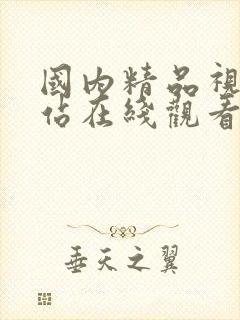 國內精品視
佔在綫觀看
垂天之翼